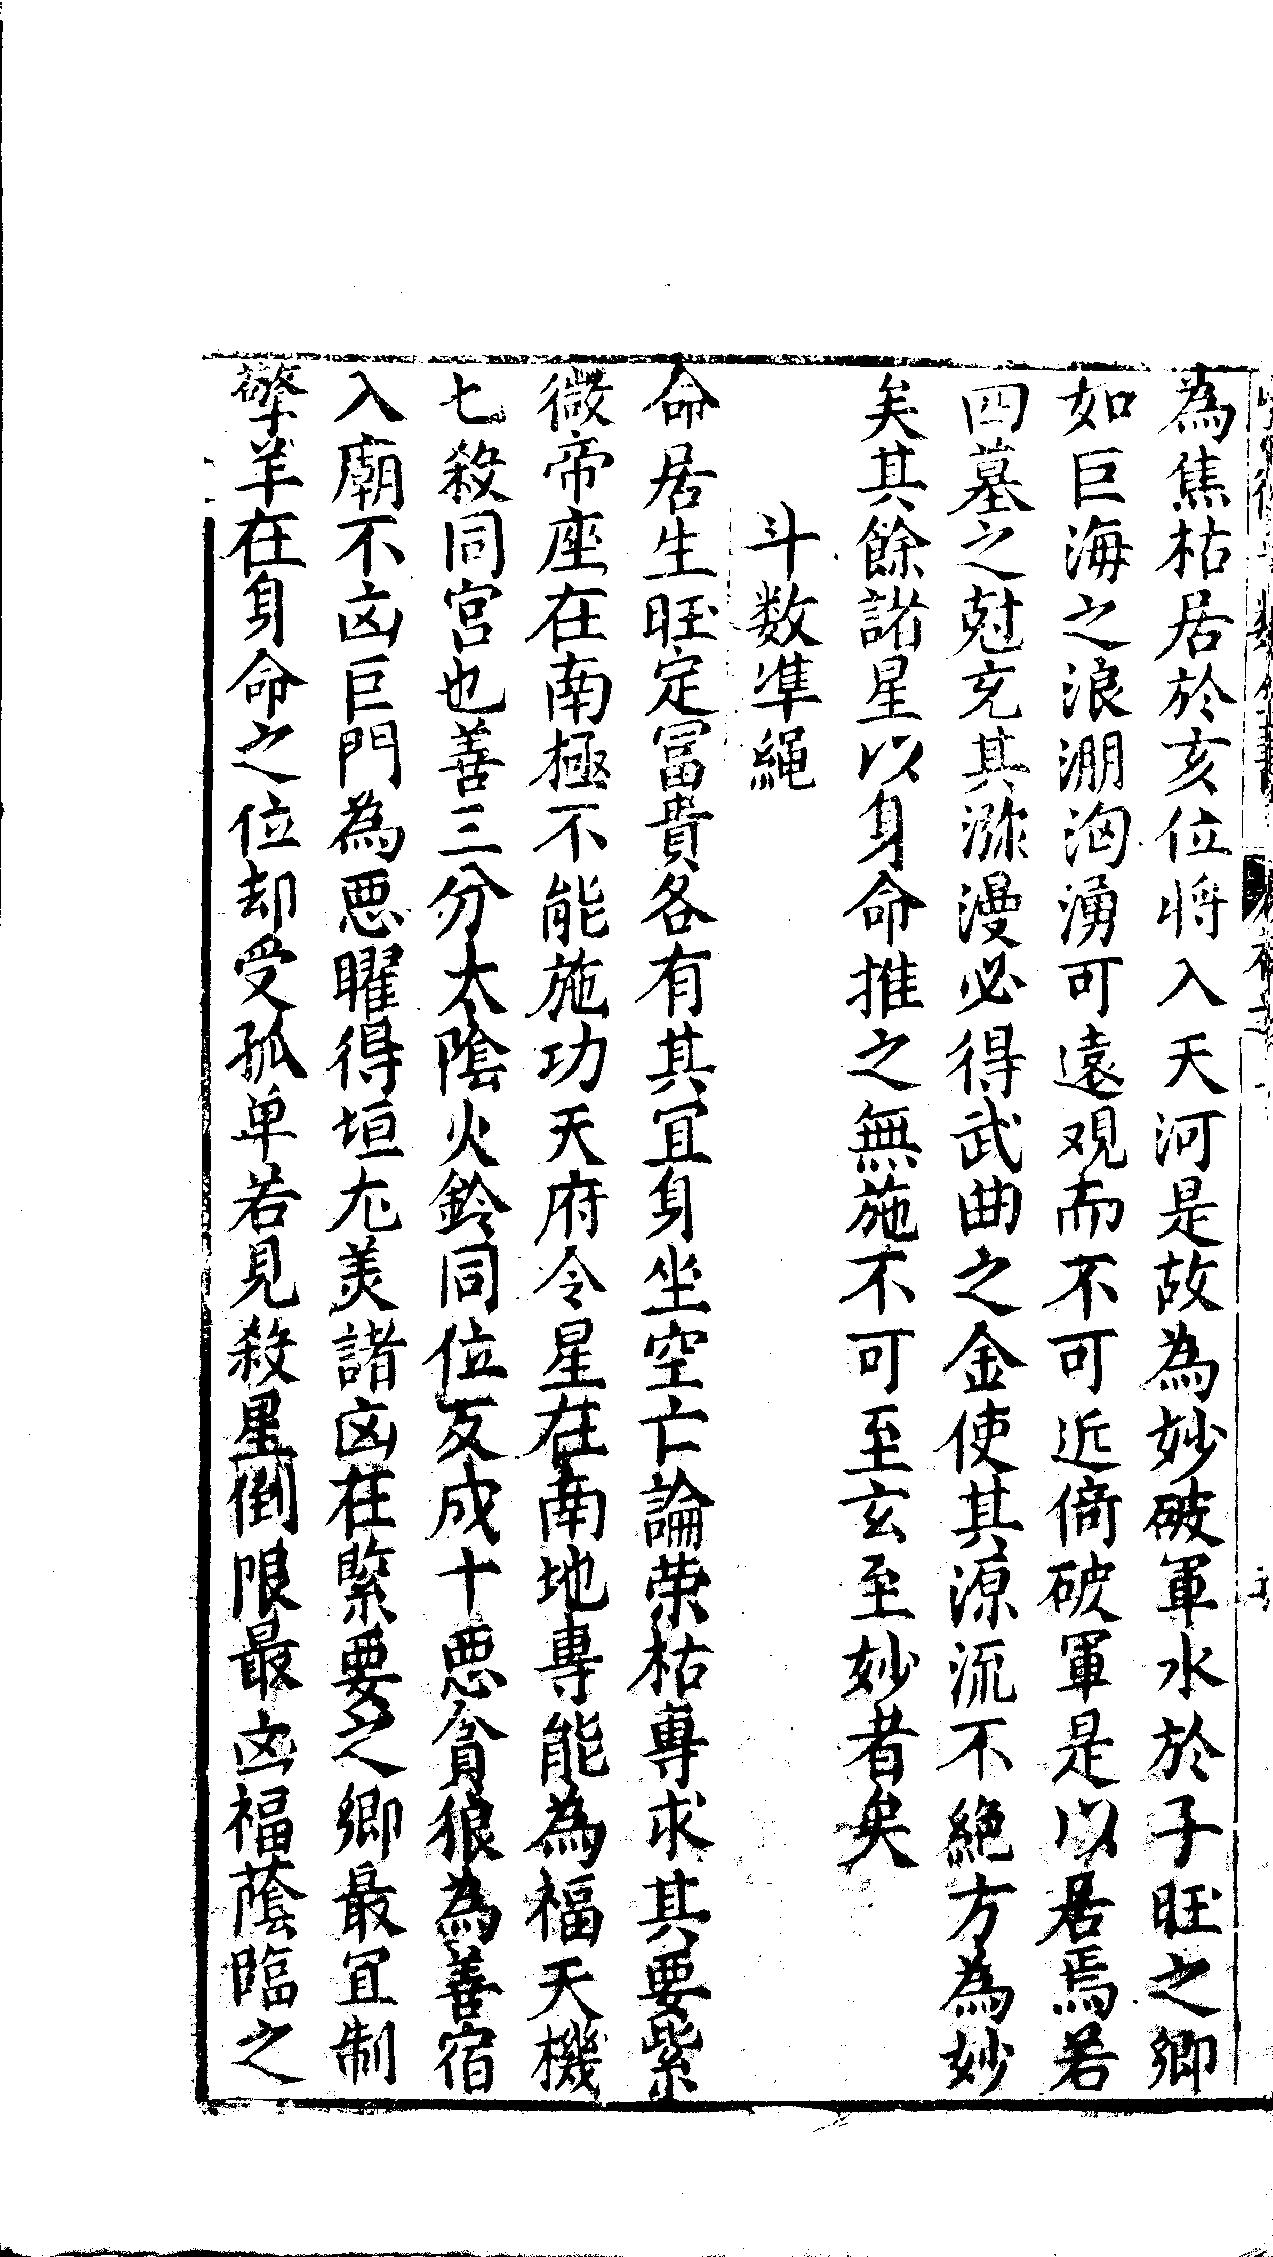 為焦枯居於亥位将入天河是故為妙破軍水於子旺之卿
如巨海之浪淜洶湧可遠观而不可近倚破軍是以居焉若
四墓之尅充其瀰漫必得武曲之金使其源流不絶方為妙
矣其餘諸星以身命推之無施不可至玄至妙者矣
斗数凖繩
命居生旺定冨貴各有其冝身坐空亡論荣枯專求其要紫
微帝座在南極不能施功天府令星在南地專能為福天機
七殺同宮也善三分太陰火鈴同位反成十悪貪狼為善宿
入廟不凶巨門為悪曜得垣尤美諸凶在緊要之卿最冝制
擎羊在身命之位却受孤单若見殺星倒限最凶福蔭臨之